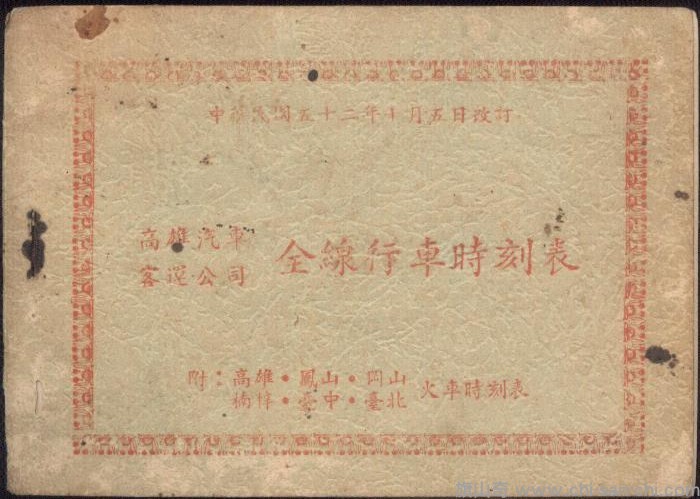 中華民國五十二年十月五日改訂
高雄汽車
客運公司
全線行車時刻表
附：高雄・鳳山・岡山
楠梓・臺中・臺北
火車時刻表